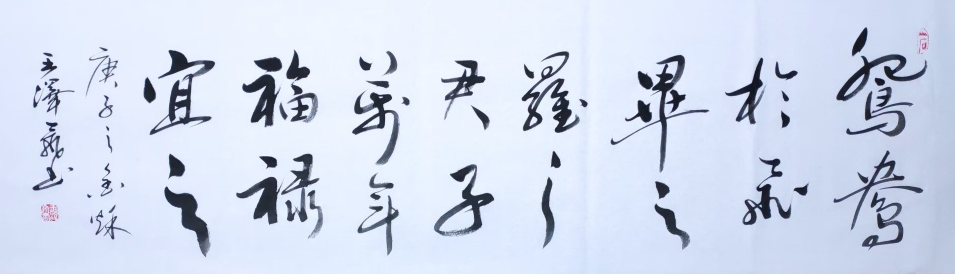 鴛鴦
於飛
畢之
羅之
君子
萬年
福禄
宜之
庚子之金秋
王澤書